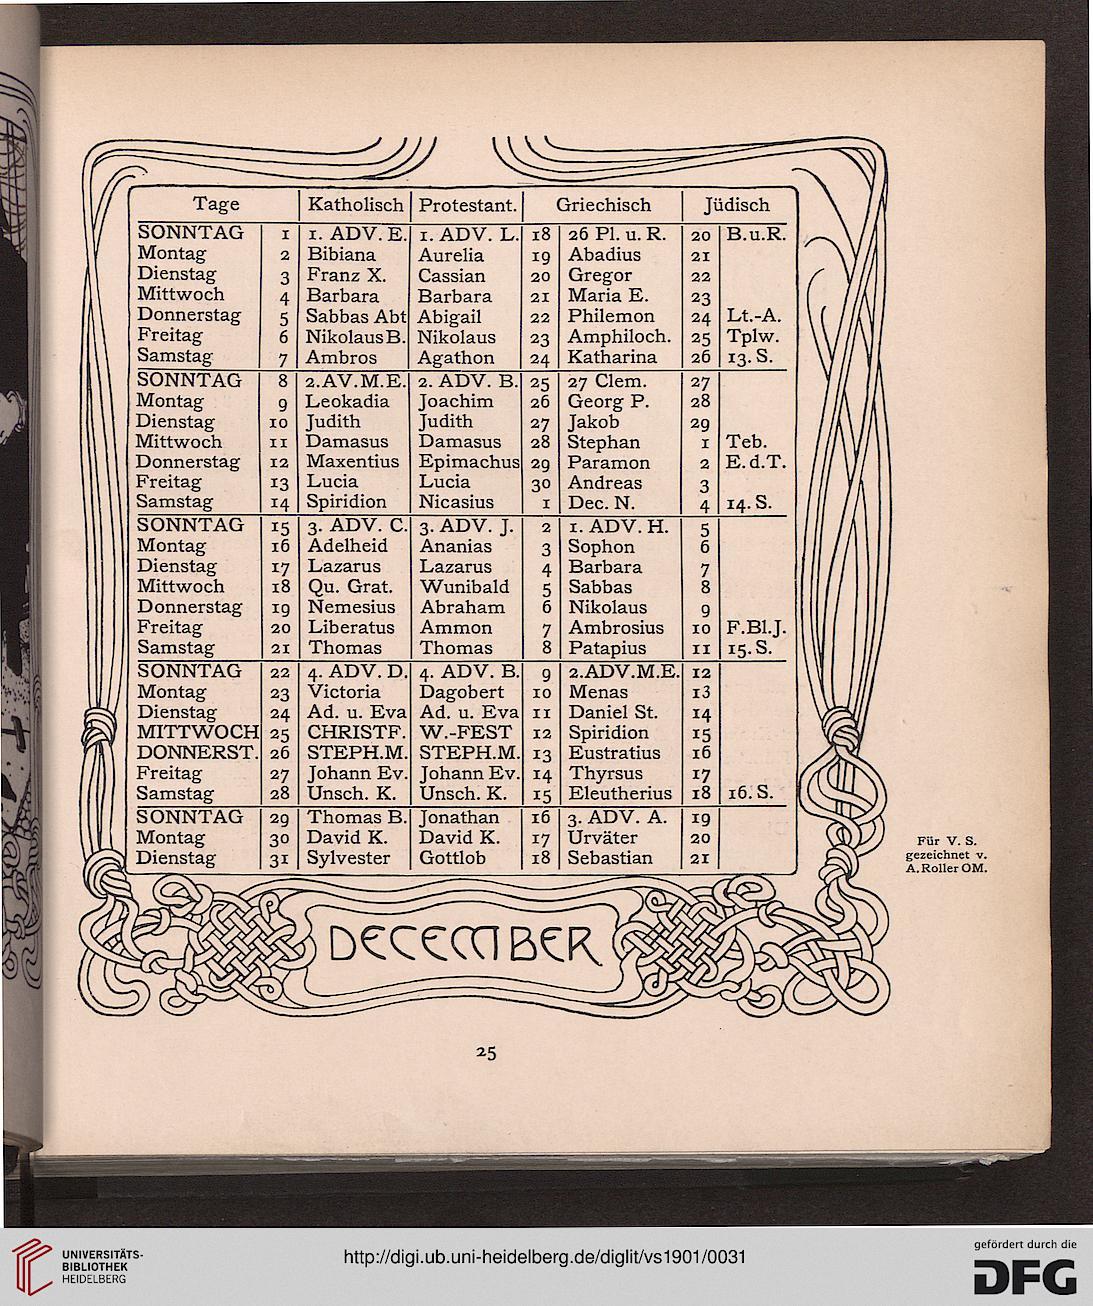 Tage Katholisch Protestant. Griechisch Jüdisch
SONNTAG 1 1. ADV. E. 1. ADV. L. 18 26 Pl. u. R. 20 B.u.R.
Montag 2 Bibiana Aurelia 19 Abadius 21
Dienstag 3 Franz X. Cassian 20 Gregor 22
Mittwoch 4 Barbara Barbara 21 Maria E. 23
Donnerstag 5 Sabbas Abt Abigail 22 Philemon 24 Lt.-A.
Freitag 6 Nikolaus B. Nikolaus 23 Amphiloch. 25 Tplw.
Samstag 7 Ambros Agathon 24 Katharina 26 13. S.
SONNTAG 8 2.AV.M.E. 2. ADV. B. 25 27 Clem. 27
Montag 9 Leokadia Joachim 26 Georg P. 28
Dienstag 10 Judith Judith 27 Jakob 29
Mittwoch 11 Damasus Damasus 28 Stephan 1 Teb.
Donnerstag 12 Maxentius Epimachus 29 Paramon 2 E.d.T.
Freitag 13 Lucia Lucia 30 Andreas 3
Samstag 14 Spiridion Nicasius 1 Dec. N. 4 14. S.
SONNTAG 15 3. ADV. C. 3. ADV. J. 2 1. ADV. H. 5
Montag 16 Adelheid Ananias 3 Sophon 6
Dienstag 17 Lazarus Lazarus 4 Barbara 7
Mittwoch 18 Qu. Grat. Wunibald 5 Sabbas 8
Donnerstag 19 Nemesius Abraham 6 Nikolaus 9
Freitag 20 Liberatus Ammon 7 Ambrosius 10 F.Bl.J.
Samstag 21 Thomas Thomas 8 Patapius 11 15. S.
SONNTAG 22 4. ADV. D. 4. ADV. B. 9 2.ADV.M.E. 12
Montag 23 Victoria Dagobert 10 Menas 13
Dienstag 24 Ad. u. Eva Ad. u. Eva 11 Daniel St. 14
MITTWOCH 25 CHRISTF. W.-FEST 12 Spiridion 15
DONNERST. 26 STEPH.M. STEPH.M. 13 Eustratius 16
Freitag 27 Johann Ev. Johann Ev. 14 Thyrsus 17
Samstag 28 Unsch. K. Unsch. K. 15 Eleutherius 18 16. S.
SONNTAG 29 Thomas B. Jonathan 16 3. ADV. A. 19
Montag 30 David K. David K. 17 Urväter 20
Dienstag 31 Sylvester Gottlob 18 Sebastian 21
Für V. S.
gezeichnet v.
A. Roller OM.
DECEMBER
25
UNIVERSITÄTS-
BIBLIOTHEK
HEIDELBERG
http://digi.ub.uni-heidelberg.de/diglit/vs1901/0031
gefördert durch die
DFG